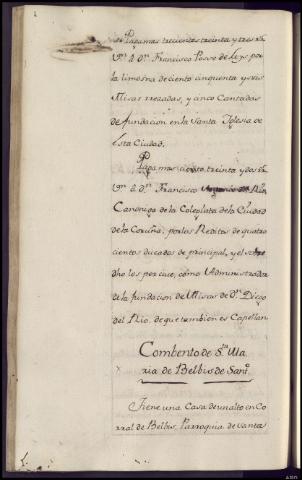 Paga mas trecientos treinta y tres rs.
Vn. á Dn. Francisco Posse de Leys por
la limosna de ciento cinquenta y seis
Misas rrezadas, y cinco Cantadas
de fundacion en la Santa Iglesia de
esta Ciudad.
Paga mas ciento treinta y dos rs.
Vn. á Dn. Francisco del Rio
Canonigo de la Colexiata de la Ciudad
de la Coruña, por los Reditos de quatro
cientos ducados de principal, y el
dho los percive, como Administrador
de la fundacion de Misas de Dn. Diego
del Rio, de que tambien es Capellan.
Combento de Sta. Ma
ria de Belbis de Santo.
Tiene una Casa de un alto en Co
rral de Belbis, Parroquia de Santa